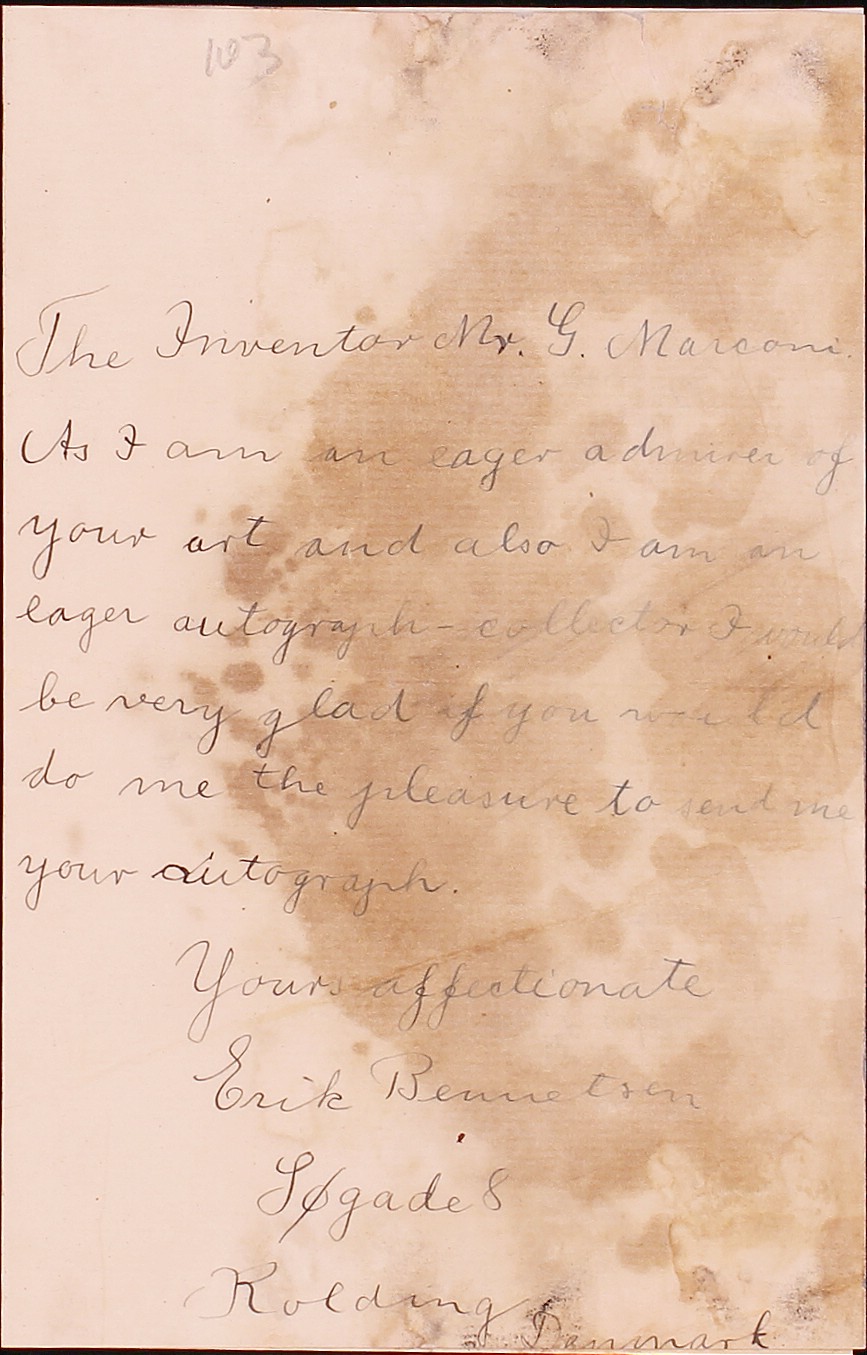 103
The Inventor Mr. G. Marconi.
As I am an eager admirer of
your art and also I am an
eager autograph-collector I would
be very glad if you would
do me the pleasure to send me
your autograph.
Yours affectionate
Erik Bennetsen
Søgade 8
Kolding
Danmark